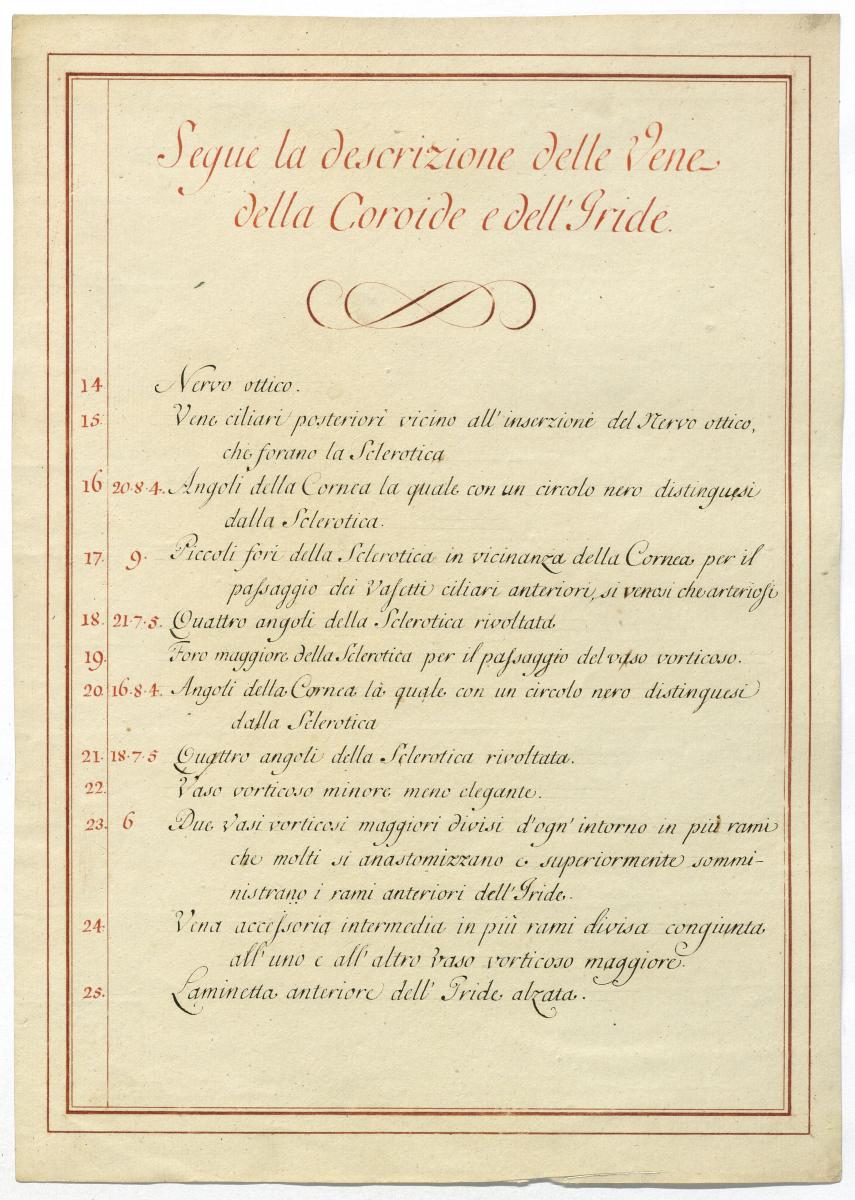 Segue la descrizione delle Vene
della Coroide e dell'Iride.
14. Nervo ottico.
15. Vene ciliari posteriori vicino all'inserzione del Nervo ottico,
che forano la Sclerotica
16 20.8.4. Angoli della Cornea la quale con un circolo nero distinguesi
dalla Sclerotica.
17. 9. Piccoli fori della Sclerotica in vicinanza della Cornea per il
paſsaggio dei Vasetti ciliari anteriori, si venosi che arteriosi
18. 21.7.5. Quattro angoli della Sclerotica rivoltata
19. Foro maggiore della Sclerotica per il paſsaggio del vaso vorticoso.
20. 16.8.4. Angoli della Cornea la quale con un circolo nero distinguesi
dalla Sclerotica
21. 18.7.5 Quattro angoli della Sclerotica rivoltata.
22. Vaso vorticoso minore meno elegante.
23. 6 Due Vasi vorticosi maggiori divisi d'ogn'intorno in più rami
che molti si anastomizzano e superiormente sommi-
nistrano i rami anteriori dell'Iride.
24. Vena acceſsoria intermedia in più rami divisa congiunta
all'uno e all'altro vaso vorticoso maggiore.
25. Laminetta anteriore dell'Iride alzata.